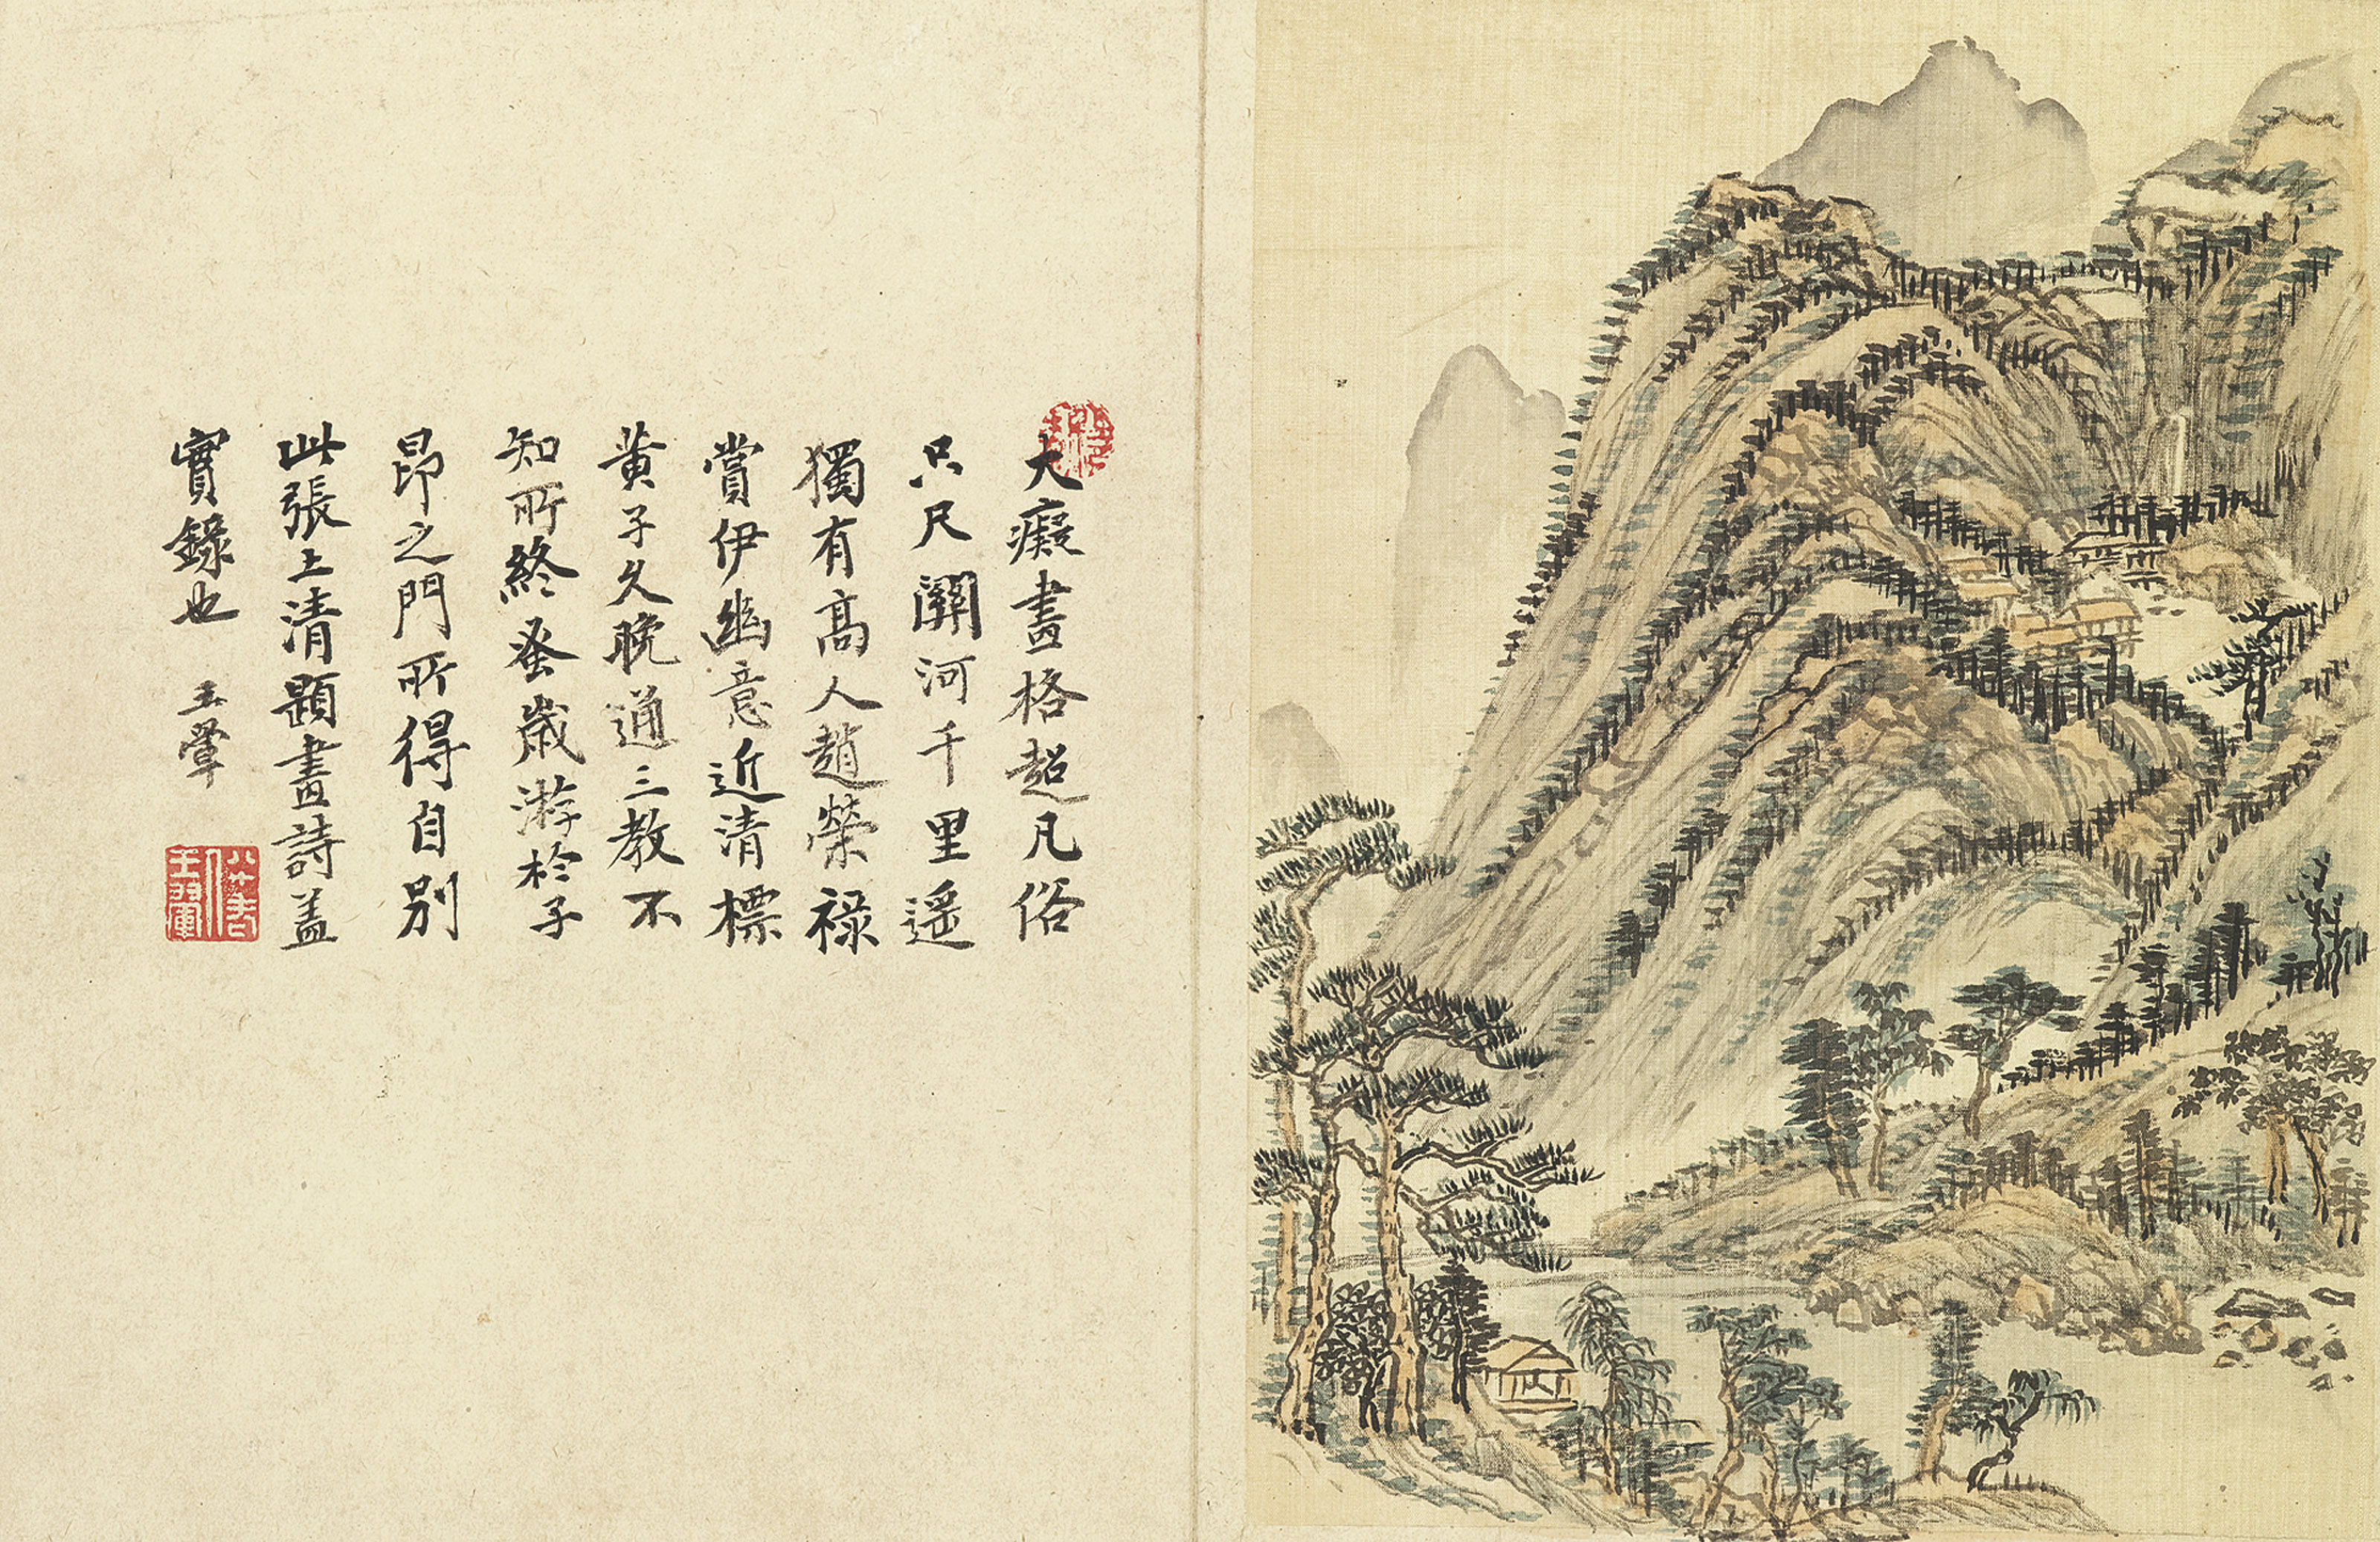 大癡畫格超凡俗
只尺關河千里遥
獨有高人趙榮祿
賞伊幽意近清標
黄子久晚通三教不
知所終蚤歲游於子
昂之門所得自別
此張上清題畫詩盖
實錄也 王翬